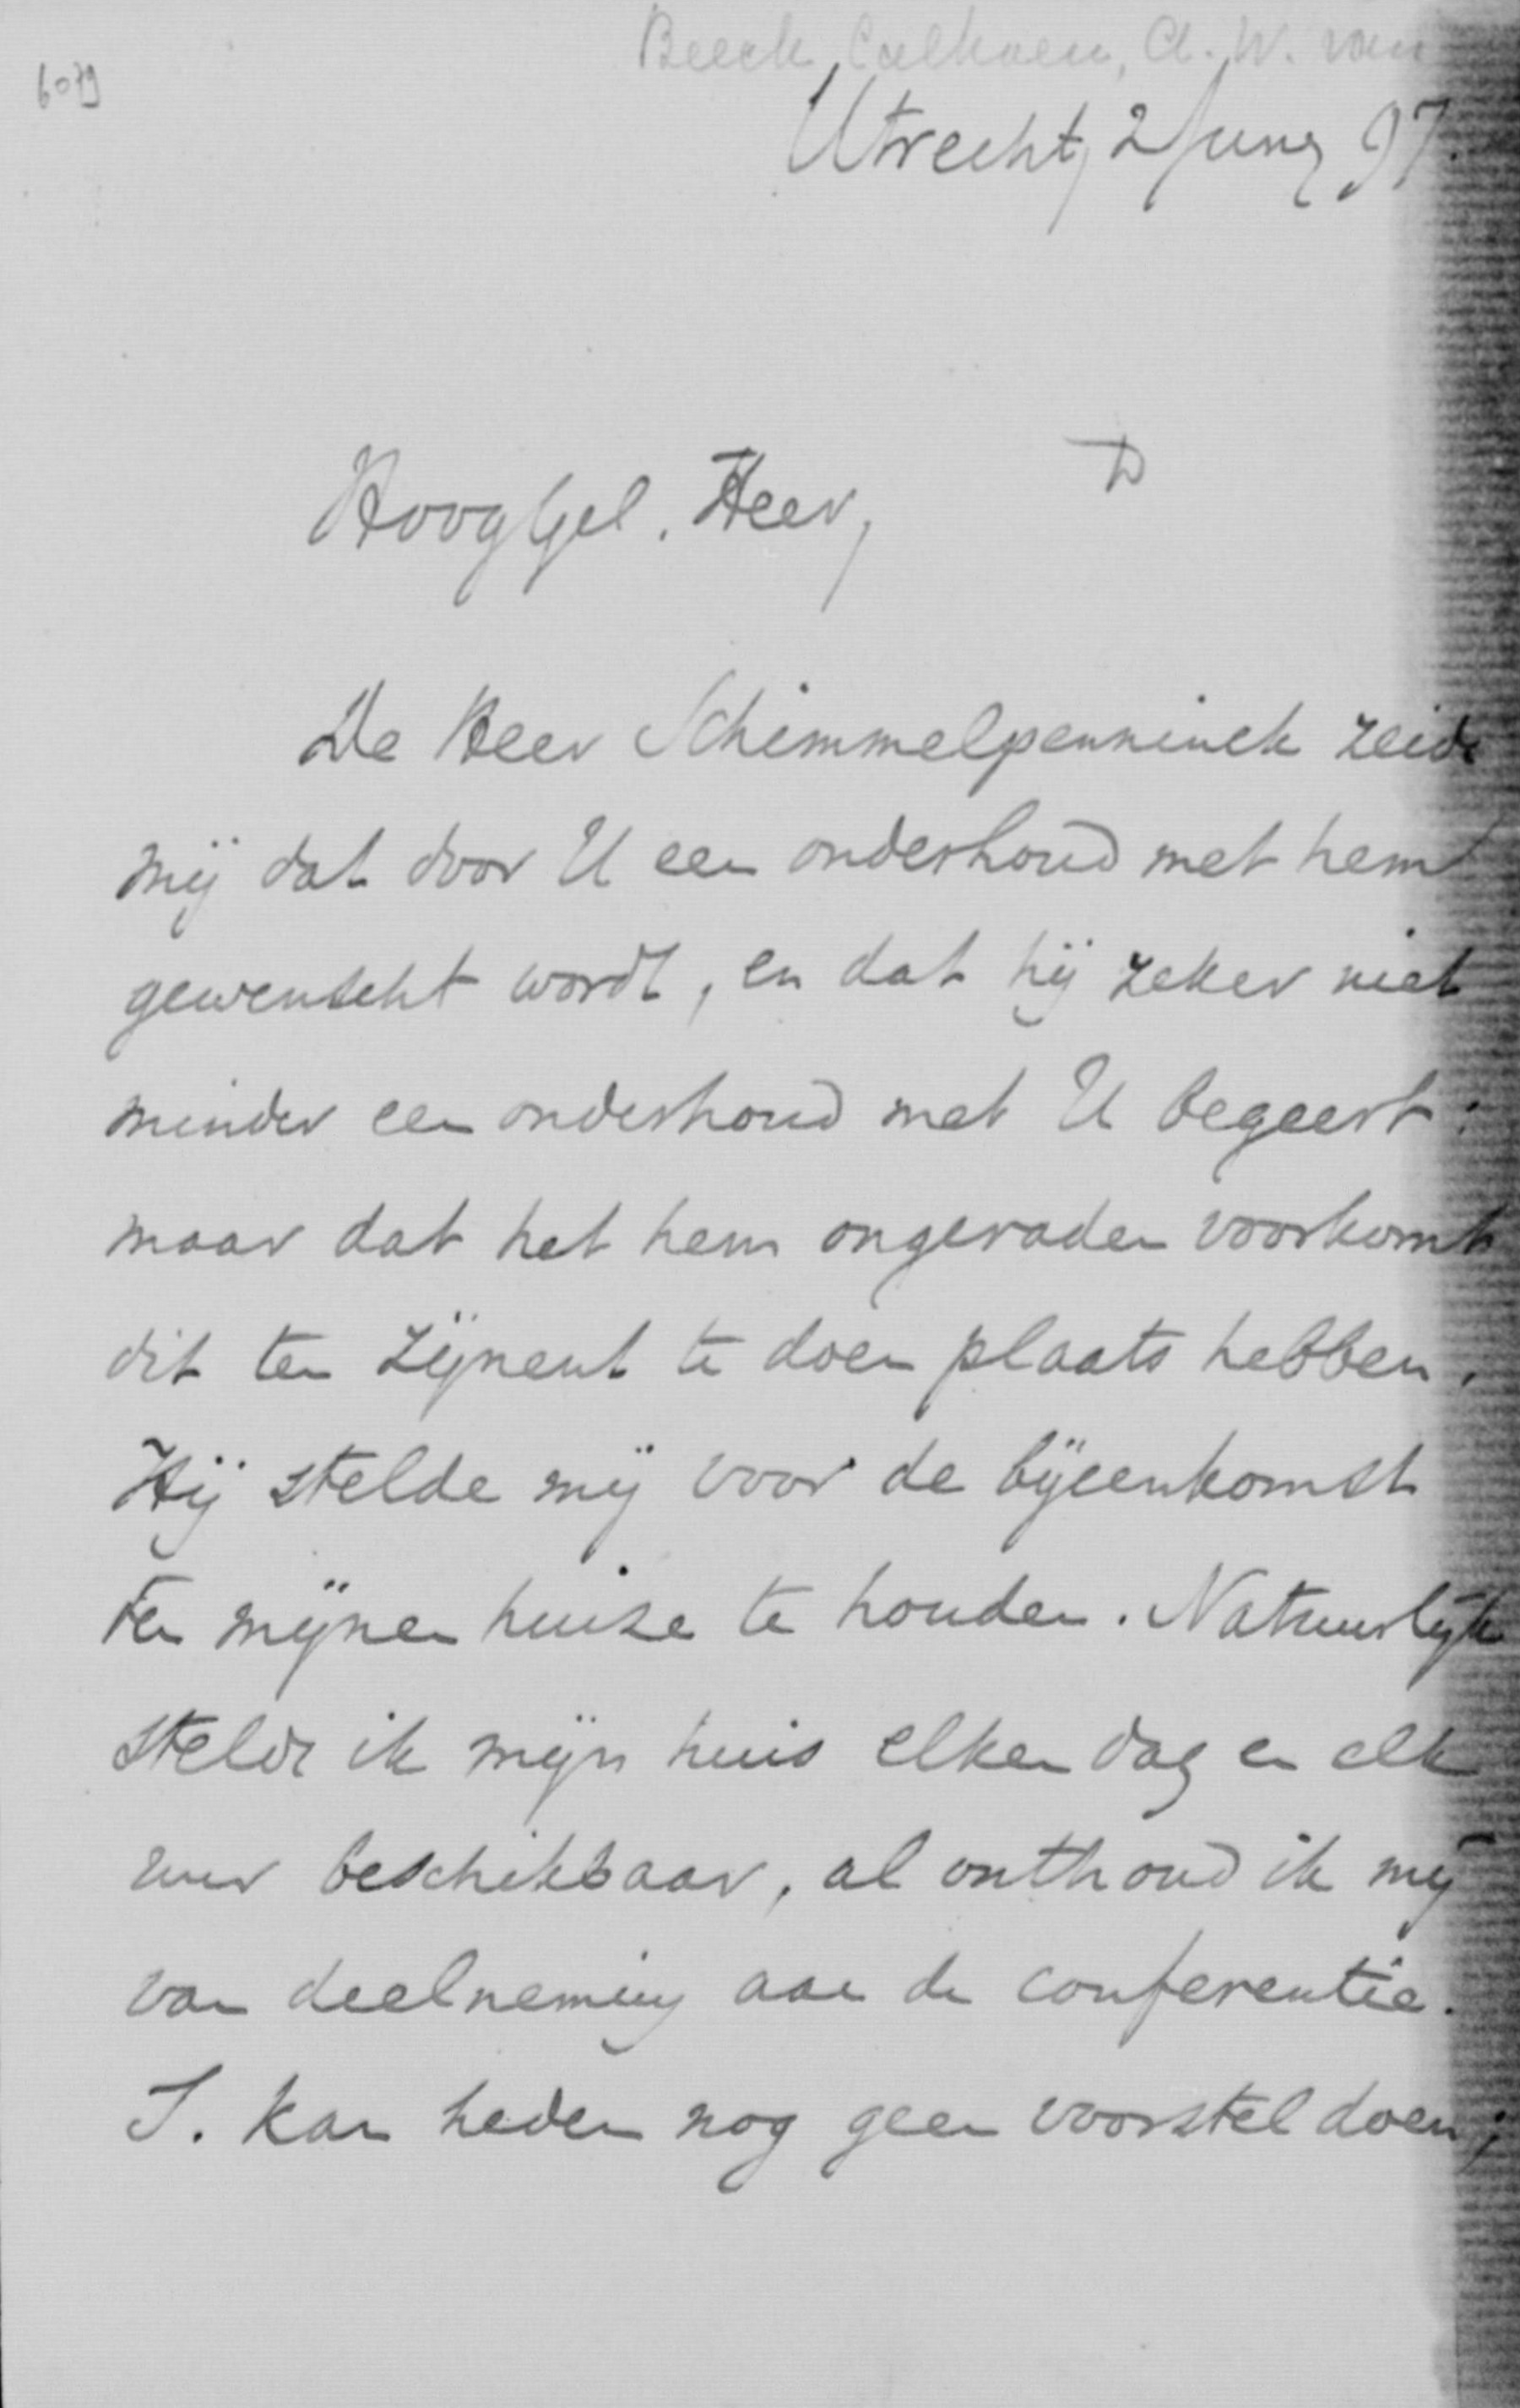 Beeck Calkoen, A. W. van
6079
Utrecht, 2 Juny 97.
HoogGel. Heer,
De Heer Schimmelpenninck zeide
mij dat door U een onderhoud met hem
gewenscht wordt, en dat hij zeker niet
minder een onderhoud met U begeert:
maar dat het hem ongeraden voorkomt
dit ten zijnent te doen plaats hebben.
Hij stelde mij voor de bijeenkomst
ten mijnen huize te houden. Natuurlijk
stelde ik mijn huis elken dag en elk
uur beschikbaar, al onthoud ik mij
van deelneming aan de conferentie.
S. kan heden nog geen voorstel doen;